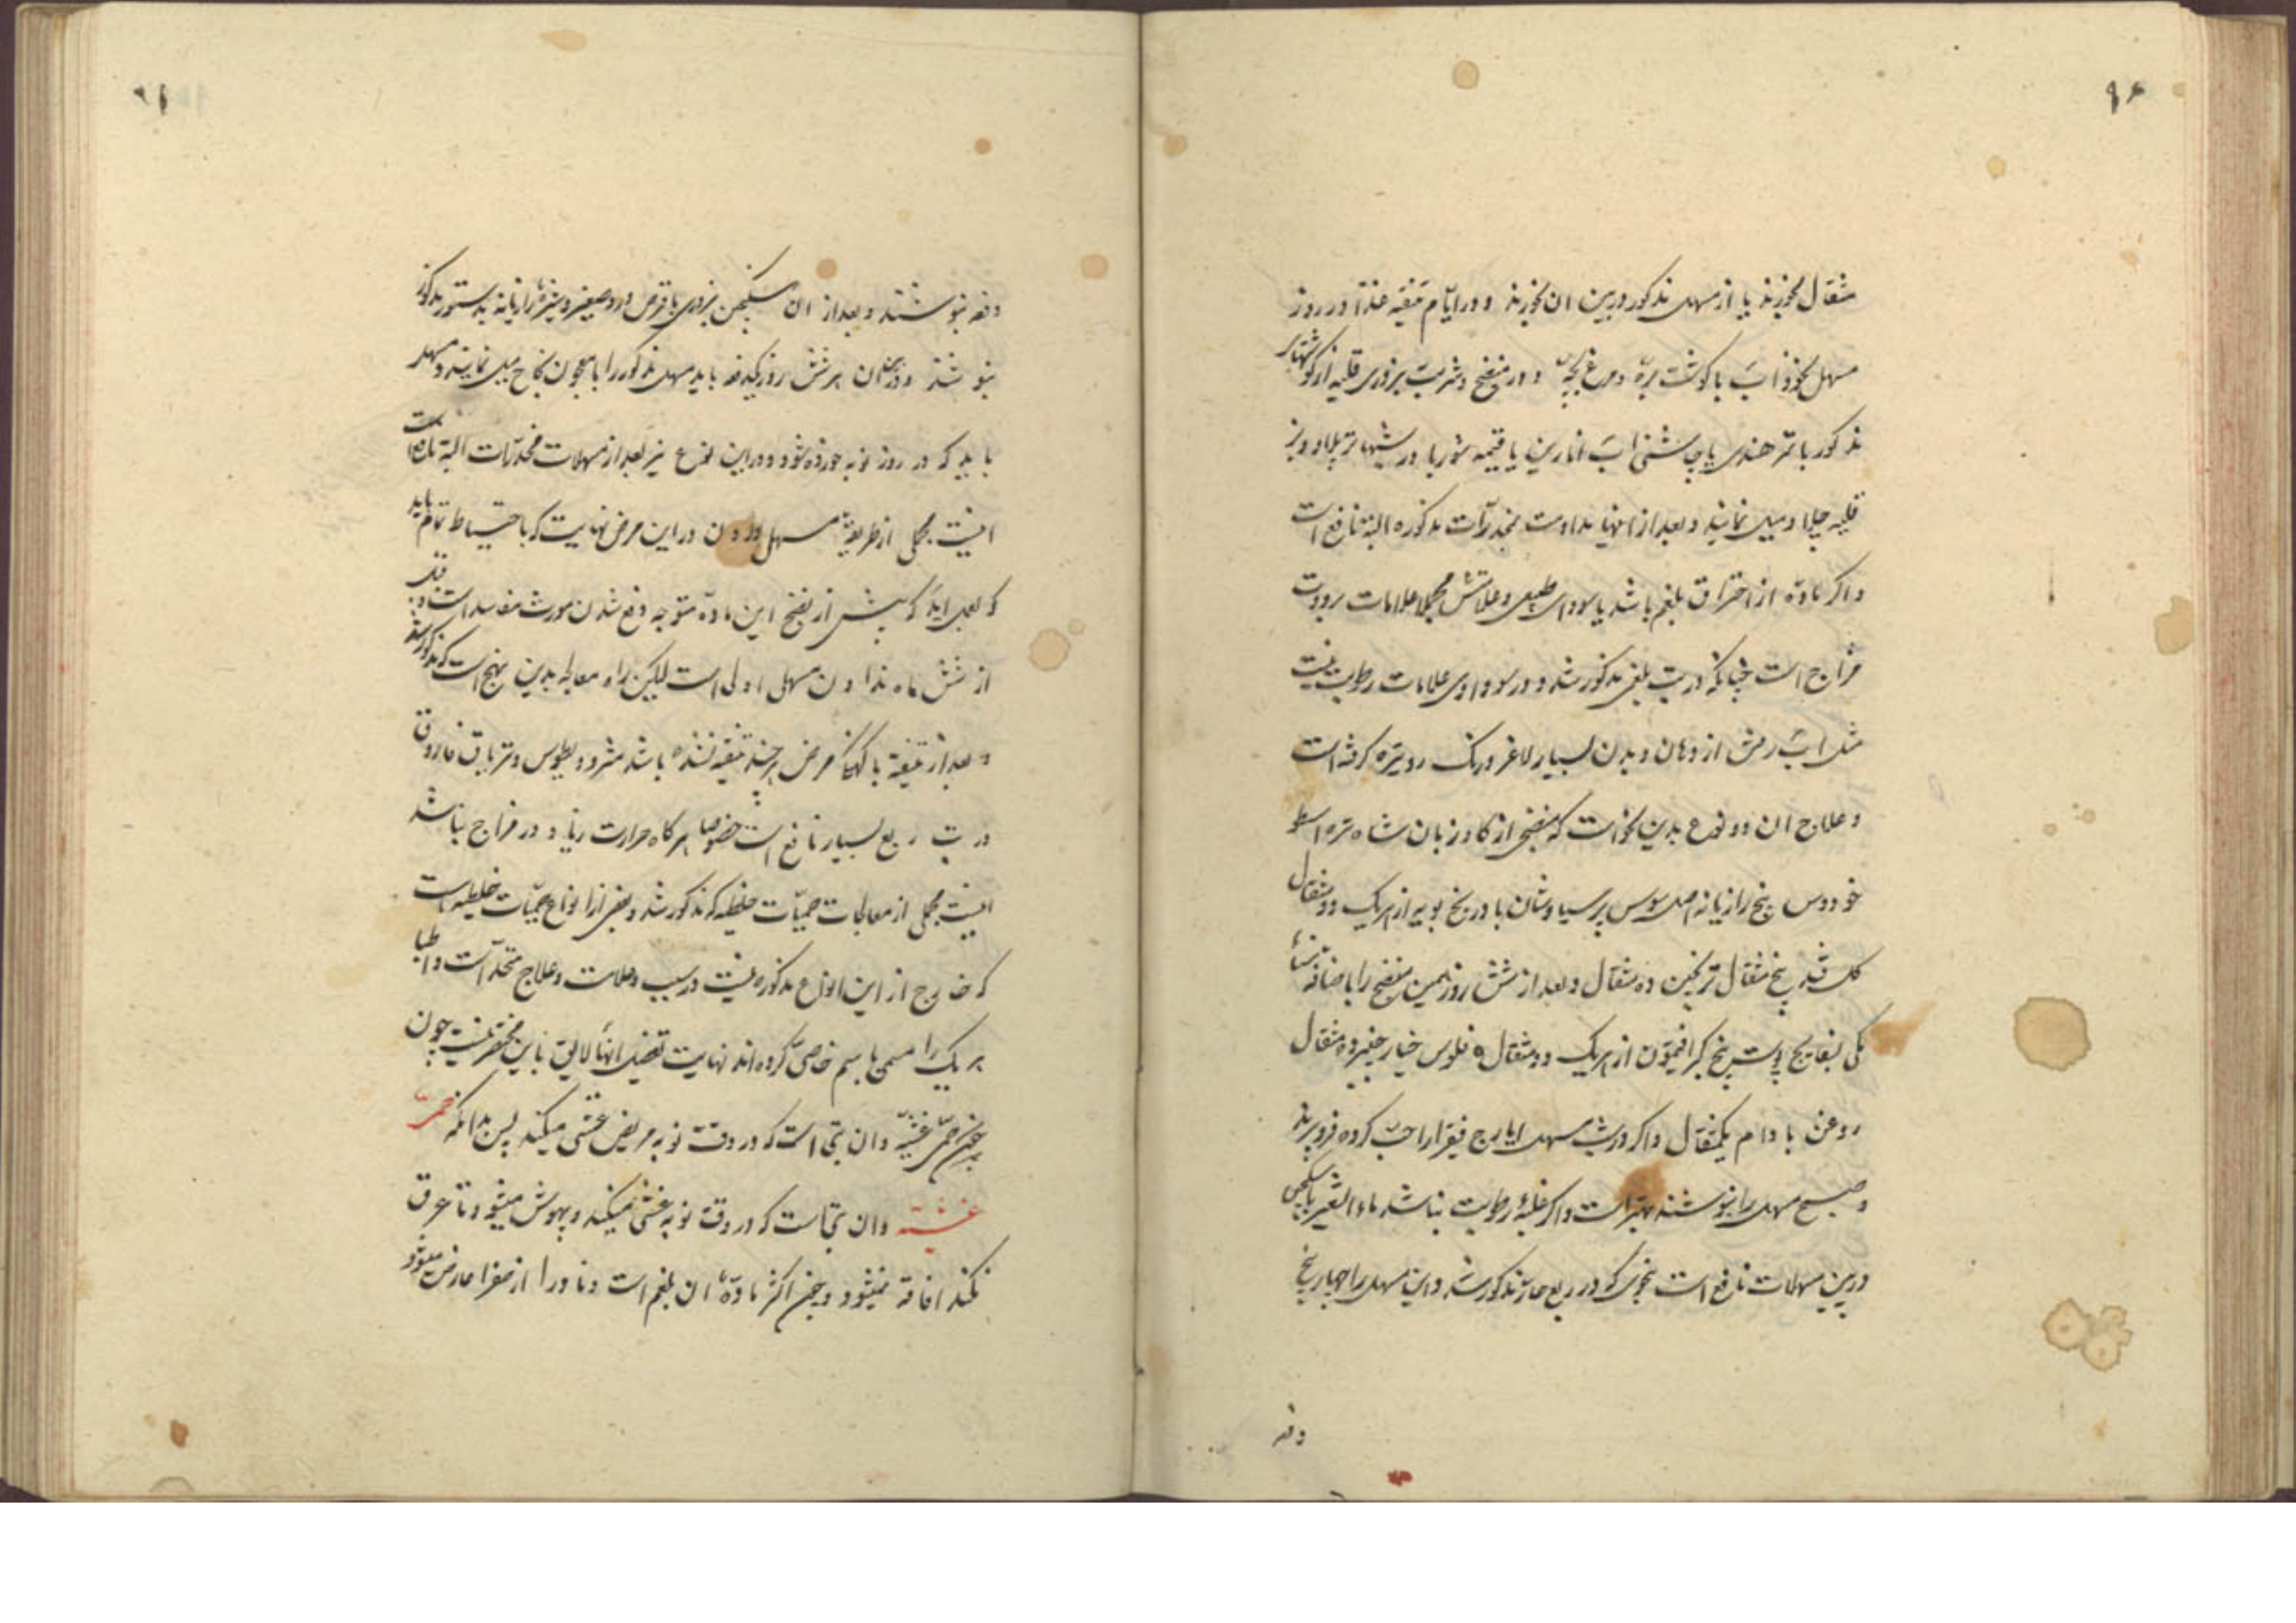 مثقال بخورند یا از مسهل مذکور درین ان بخورند و در ایام تنقیه غذا در روز
مسهل نخوداب با گوشت بره و مرغ بچه و در منضج و شربت بزوری قلیه از گوشتهای
مذکور با تمر هندی یا چاشنی اب انارین یا قیمه شوربا در شبها تر پلاو و نیز
قلیه چلاو میل نمایند و بعد از اینها مداومت مخدرات مذکوره البته نافع است
و اگر ماده از احتراق بلغم باشد یا سودای طبیعی و علاتش مجملا علامات برودت
مزاج است چنانکه در تب بلغمی مذکور شد و در سوداوی علامات رطوبت نیست
مثل اب رفتن از دهان و بدن بسیار لاغر و رنگ رو تیره گرفته است
و علاج ان دو نوع بدین نحو است که منضجی از گاو زبان شاه تره اسطو
خودوس بیخ رازیانه اصل سوس پرسیاوشان بادرنجبویه از هریک دو مثقال
گل قند پنج مثقال ترنجبین ده مثقال و بعد از شش روز همین منضج را باضافه سناء
مکی بسفایج پوست بیخ کبر افتیمون از هریک دو مثقال فلوس خیار چنبر ده مثقال
روغن بادام یکمثقال و اگر در شب مسهل ایارج فیقرا را حب کرده فرو برند
و صبح مسهل را بنوشند بهتر است و اگر غلبۀ رطوبت نباشد ماء الشعیر با سکنجبین
درین مسهلات نافع است بنحوی که در ربع حار مذکور شد و این مسهل را چهار پنج
دفعه
دفعه بنوشند و بعد از ان سکنجبین بزوری با قرص ورد صغیر و شیرۀ رازیانه بدستور مذکور
بنوشند و در میان هر شش روز یکدفعه باید مسهل مذکور را با معجون نجاح میل نمایند و مسهل
باید که در روز نوبه خورده شود و در این نوع نیز بعد از مسهلات مخدرات البته
اینست مجملی از طریقۀ مسهل دادن در این مرض نهایت که باحتیاط تمام باید
که بعمل اید که پیش از نضج این ماده متوجه دفع شدن مورث مفاسد است و قبل
از شش ماه ندادن مسهل اولی است لیکن راه معالجه بدین نهج است که مذکور شد
و بعد از تنقیه با کهنگی مرض هر چند تنقیه نشده باشد مثرودیطوس و تریاق فاروق
در تب ربع بسیار نافع است خصوصا هرگاه حرارت زیاد در مزاج نباشد
اینست مجملی از معالجات حمیات خلطیه که مذکور شد و بعضی از انواع حمیات خلطیه است
که خارج از این انواع مذکوره نیست در سبب و علامت و علاج متحد است و اطبا
هر یک را مسمی باسم خاصی کرده اند نهایت تفصیل انها لایق باین مختصر نیست چون
حمی غشیه و ان تبی است که در وقت نوبه مریض غشی میکند پس بدانکه حمی
غشیه و ان تبی است که در وقت نوبه غشی میکند و بیهوش میشود و تا عرق
نکند افاقه نمیشود و چنین اکثر مادۀ ان بلغم است و نادرا از صفرا عارض میشود